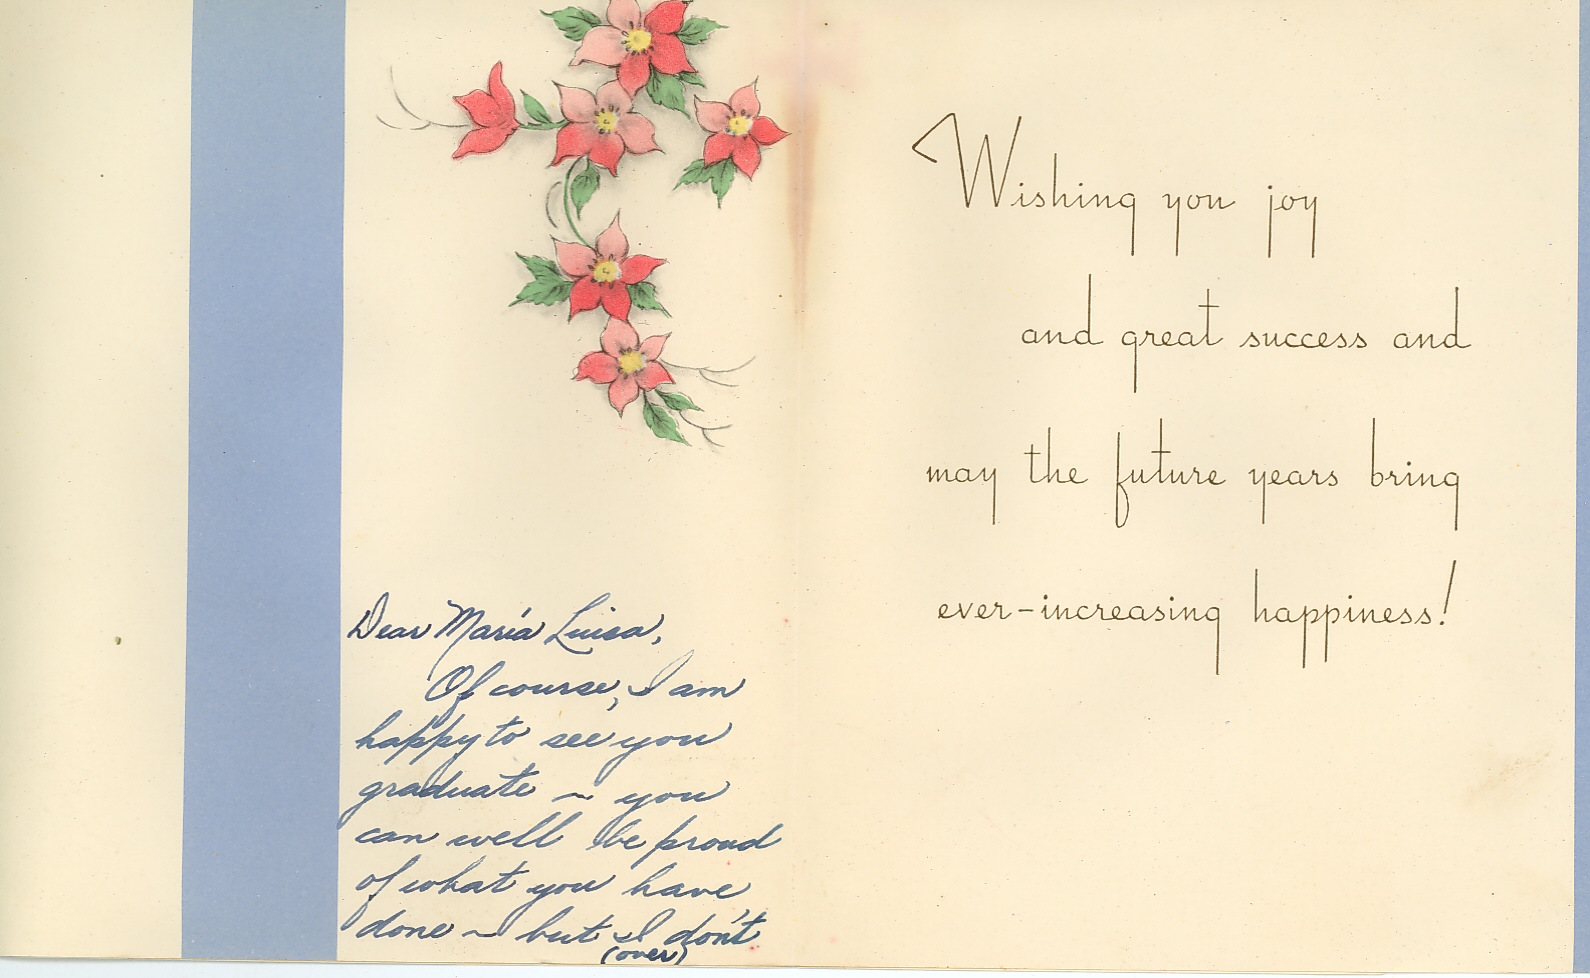 Dear María Luisa,
Of course, I am
happy to see you
graduate ~ you
can well be proud
of what you have
done ~ but I don't
(over)
Wishing you joy
and great success and
may the future years bring
ever-increasing happiness!